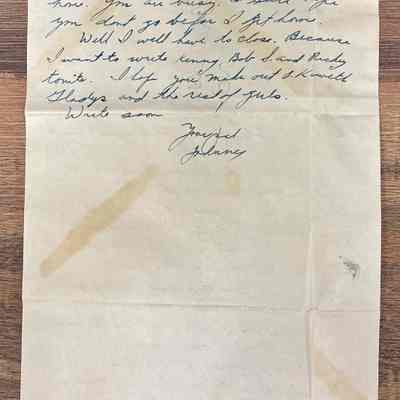 here. You are busy. I sure hope
you don't go before I get home.
Well I will have to close. Because
I want to write Kenny, Bob S. and Rudy
tonite. I hope you make out O.K with
Gladys and the rest of girls.
Write soon
Your pal